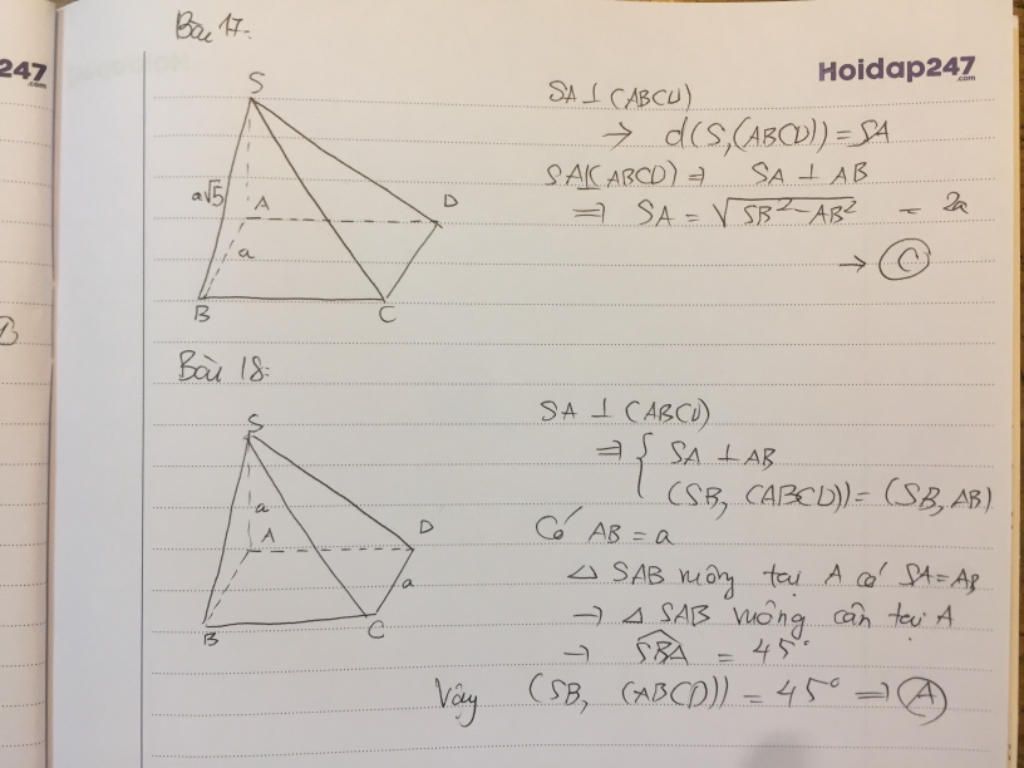 Bài 17:
247
.com
Hoidap247
.com
S
a√5
A
D
a
B
C
SA ⊥ (ABCD)
→ d(S,(ABCD)) = SA
SA⊥(ABCD) ⇒ SA ⊥ AB
⇒ SA = √SB²-AB² = 2a
→ C
B
Bài 18:
S
a
A
D
a
B
C
SA ⊥ (ABCD)
⇒ { SA ⊥ AB
(SB, (ABCD)) = (SB, AB)
Có AB = a
△ SAB vuông tại A có SA = AB
→ △ SAB vuông cân tại A
→ SBA = 45°
Vậy (SB, (ABCD)) = 45° ⇒ A